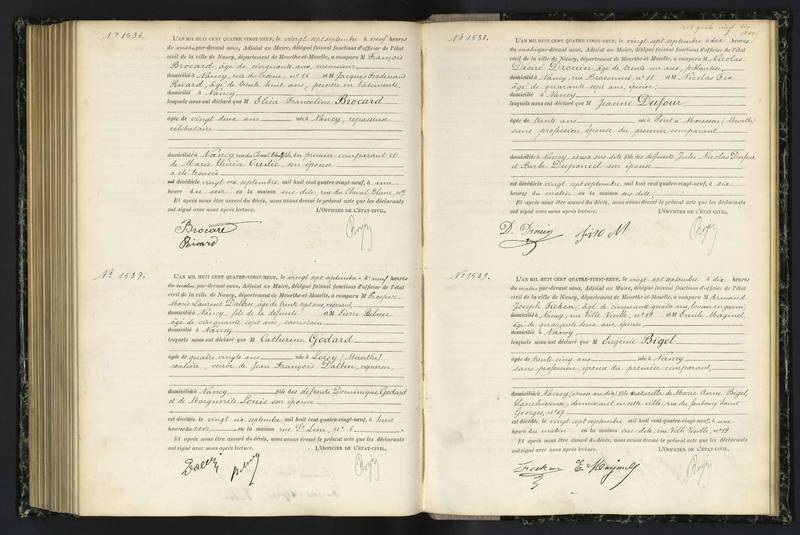 N° 1536.
L'AN MIL HUIT CENT QUATRE-VINGT-NEUF, le vingt sept septembre à neuf heures
du matin par-devant nous, Adjoint au Maire, délégué faisant fonctions d'officier de l'état
civil de la ville de Nancy, département de Meurthe-et-Moselle, a comparu M François
Brocard, âgé de cinquante ans, menuisier
domicilié à Nancy, rue du n° 16 et M Jacques Ferdinand
Ricard, âgé de trente huit ans, peintre en bâtiments,
domicilié à Nancy
lesquels nous ont déclaré que M Elisa Franceline Brocard
âgée de vingt deux ans née à Nancy, repasseuse
célibataire
domiciliée à Nancy fille du premier comparant et
de Marie Thérèse son épouse
est décédée le vingt six septembre mil huit cent quatre-vingt-neuf, à une
heure du soir en la maison sus dite, rue du Cheval Blanc, n° 9
Et après nous être assuré du décès, nous avons dressé le présent acte que les déclarants
ont signé avec nous après lecture. L'OFFICIER DE L'ÉTAT-CIVIL,
Brocard
Ricard
L'AN MIL HUIT CENT QUATRE-VINGT-NEUF, le vingt sept septembre à neuf heures
du matin par-devant nous, Adjoint au Maire, délégué faisant fonctions d'officier de l'état
civil de la ville de Nancy, département de Meurthe-et-Moselle, a comparu M Prosper
Marie Laurent Dalbin, âgé de trente sept ans,
domicilié à Nancy, fils de la défunte et M Pierre
âgé de cinquante sept ans,
domicilié à Nancy
lesquels nous ont déclaré que M Catherine Godard
âgée de quatre vingts ans née à Loisy (Meurthe)
rentière, veuve de Jean François Dalbin, vigneron,
domiciliée à Nancy fille des défunts Dominique Godard
et de Marguerite Louis son épouse
est décédée le vingt six septembre mil huit cent quatre-vingt-neuf, à huit
heures du soir en la maison rue St Léon, n° 6
Et après nous être assuré du décès, nous avons dressé le présent acte que les déclarants
ont signé avec nous après lecture. L'OFFICIER DE L'ÉTAT-CIVIL,
N° 1538.
L'AN MIL HUIT CENT QUATRE-VINGT-NEUF, le vingt sept septembre à dix heures
du matin par-devant nous, Adjoint au Maire, délégué faisant fonctions d'officier de l'état
civil de la ville de Nancy, département de Meurthe-et-Moselle, a comparu M Nicolas
Désiré Drouin, âgé de trente un ans,
domicilié à Nancy, rue n° 11 et M Nicolas
âgé de quarante sept ans, épicier,
domicilié à Nancy
lesquels nous ont déclaré que M Jeanne Dufour
âgée de trente ans née à Pont à Mousson (Meurthe)
sans profession, épouse du premier comparant
domiciliée à Nancy, susdite fille des défunts Jules Nicolas Dufour
et Barbe son épouse
est décédée le vingt sept septembre mil huit cent quatre-vingt-neuf, à six
heures du matin en la maison sus dite,
Et après nous être assuré du décès, nous avons dressé le présent acte que les déclarants
ont signé avec nous après lecture. L'OFFICIER DE L'ÉTAT-CIVIL,
D. Drouin
N° 1539.
L'AN MIL HUIT CENT QUATRE-VINGT-NEUF, le vingt sept septembre à dix heures
du matin par-devant nous, Adjoint au Maire, délégué faisant fonctions d'officier de l'état
civil de la ville de Nancy, département de Meurthe-et-Moselle, a comparu M Armand
Joseph âgé de cinquante quatre ans,
domicilié à Nancy, rue Ville Vieille, n° 19 et M Emile
âgé de quarante deux ans, épicier
domicilié à Nancy,
lesquels nous ont déclaré que M Eugénie Bigel
âgée de trente cinq ans née à Nancy
sans profession, épouse du premier comparant,
domiciliée à Nancy fille naturelle de Marie Anne Bigel,
blanchisseuse, demeurant en cette ville, rue du faubourg Saint
Georges, n° 19
est décédée le vingt sept septembre mil huit cent quatre-vingt-neuf, à une
heure du matin en la maison sus dite, rue Ville Vieille, n° 19.
Et après nous être assuré du décès, nous avons dressé le présent acte que les déclarants
ont signé avec nous après lecture. L'OFFICIER DE L'ÉTAT-CIVIL,